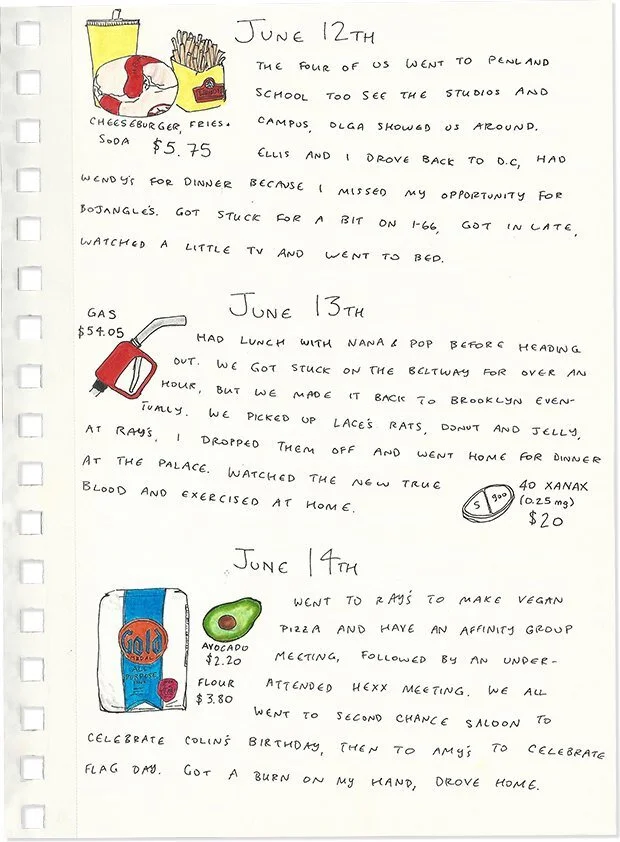 JUNE 12TH
THE FOUR OF US WENT TO PENLAND
SCHOOL TOO SEE THE STUDIOS AND
CAMPUS, OLGA SHOWED US AROUND.
CHEESEBURGER, FRIES,
SODA $5.75
ELLIS AND I DROVE BACK TO D.C, HAD
WENDY'S FOR DINNER BECAUSE I MISSED MY OPPORTUNITY FOR
BOJANGLE'S. GOT STUCK FOR A BIT ON I-66, GOT IN LATE,
WATCHED A LITTLE TV AND WENT TO BED.
JUNE 13TH
GAS
$54.05
HAD LUNCH WITH NANA & POP BEFORE HEADING
OUT. WE GOT STUCK ON THE BELTWAY FOR OVER AN
HOUR, BUT WE MADE IT BACK TO BROOKLYN EVEN-
TUALLY. WE PICKED UP LACE'S RATS, DONUT AND JELLY,
AT RAY'S, I DROPPED THEM OFF AND WENT HOME FOR DINNER
AT THE PALACE. WATCHED THE NEW TRUE
BLOOD AND EXERCISED AT HOME.
S 900
40 XANAX
(0.25 mg)
$20
JUNE 14TH
Gold
MEDAL
ALL
PURPOSE
AVOCADO
$2.20
FLOUR
$3.80
WENT TO RAY'S TO MAKE VEGAN
PIZZA AND HAVE AN AFFINITY GROUP
MEETING, FOLLOWED BY AN UNDER-
ATTENDED HEXX MEETING. WE ALL
WENT TO SECOND CHANCE SALOON TO
CELEBRATE COLIN'S BIRTHDAY, THEN TO AMY'S TO CELEBRATE
FLAG DAY. GOT A BURN ON MY HAND, DROVE HOME.